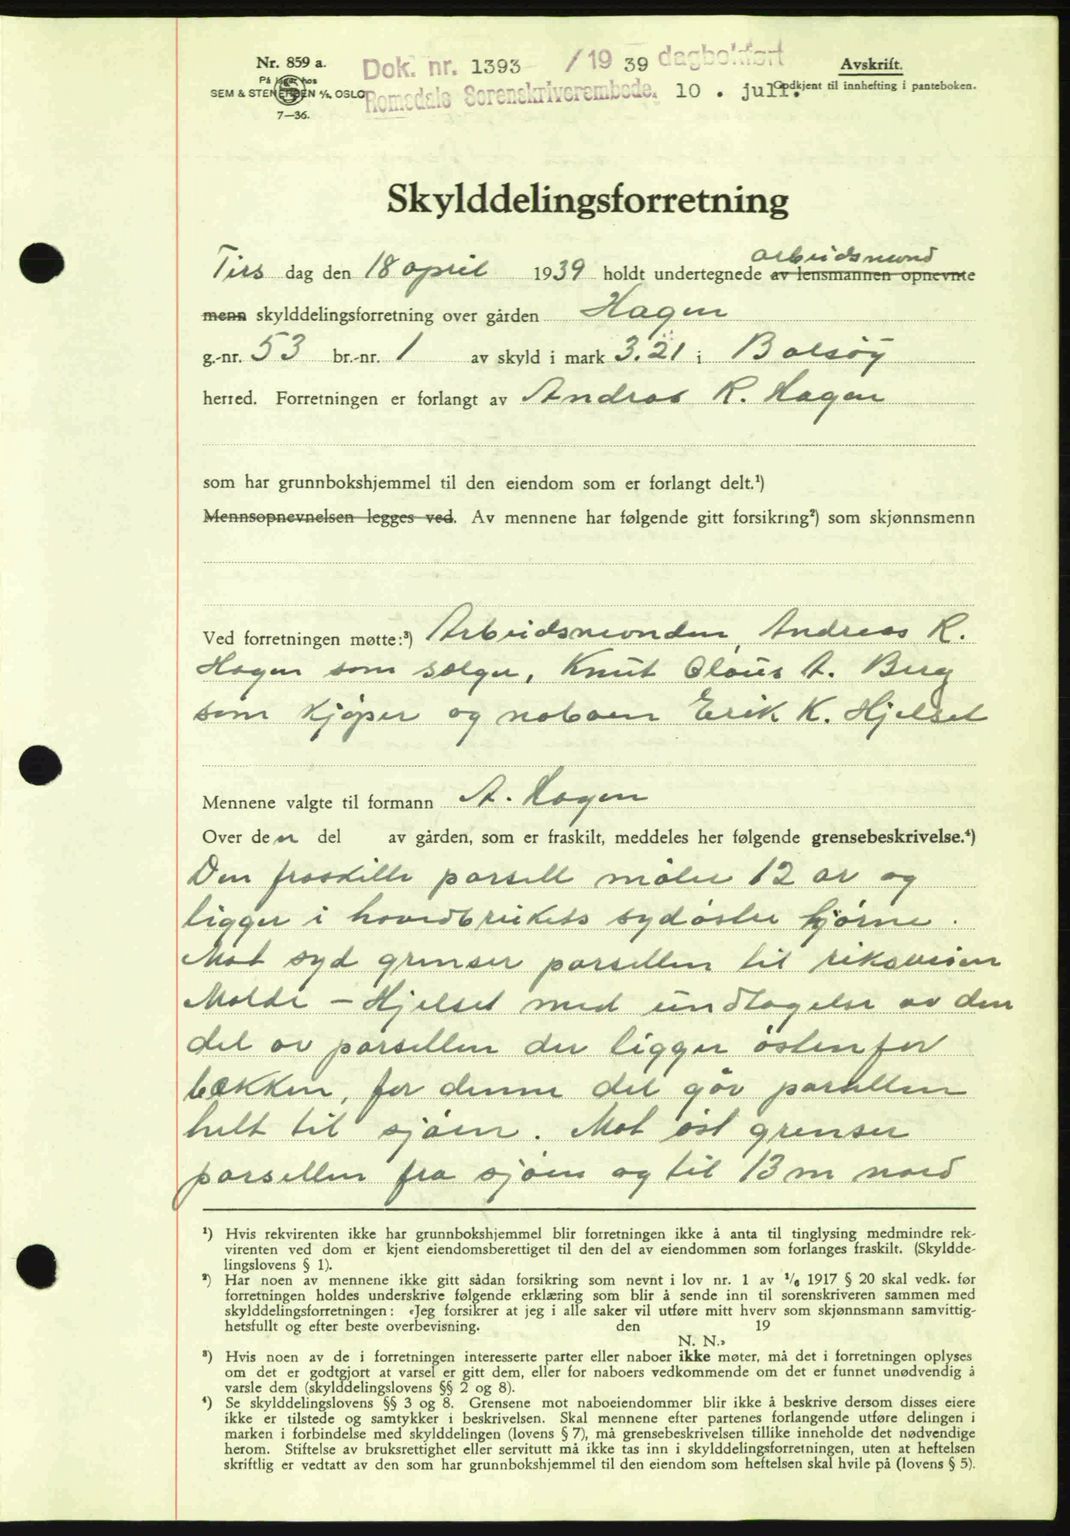 Nr. 859 a.
På lager hos
SEM & STENERSEN A/S, OSLO
7—36.
Dok. nr. 1393 /19 39 dagbokført
Romsdals Sorenskriverembede. 10 . juli.
Avskrift.
Godkjent til innhefting i panteboken.
Skylddelingsforretning
arbeidsmend
Tirs dag den 18 april 1939 holdt undertegnede av lensmannen opnevnte
menn skylddelingsforretning over gården Hagen
g.-nr. 53 br.-nr. 1 av skyld i mark 3.21 i Bolsøy
herred. Forretningen er forlangt av Andras R. Hagen
som har grunnbokshjemmel til den eiendom som er forlangt delt.¹)
Mennsopnevnelsen legges ved. Av mennene har følgende gitt forsikring²) som skjønnsmenn
Ved forretningen møtte:³) Arbeidsmenden Andreas R.
Hagen som selger, Knut Olaus A. Berg
som kjøper og naboen Erik K. Hjelset
Mennene valgte til formann A. Hagen
Over den del av gården, som er fraskilt, meddeles her følgende grensebeskrivelse.⁴)
Den fraskilte parsell måler 12 ar og
ligger i hovedbrukets sydøstre hjørne.
Mot syd grenser parsellen til riksveien
Molde — Hjelset med undtagelse av den
del av parsellen der ligger østenfor
bækken, for denne del går parsellen
helt til sjøen. Mot øst grenser
parsellen fra sjøen og til 13 m nord
¹) Hvis rekvirenten ikke har grunnbokshjemmel blir forretningen ikke å anta til tinglysing medmindre rek-
virenten ved dom er kjent eiendomsberettiget til den del av eiendommen som forlanges fraskilt. (Skyldde-
lingslovens § 1).
²) Har noen av mennene ikke gitt sådan forsikring som nevnt i lov nr. 1 av 1/6 1917 § 20 skal vedk. før
forretningen holdes underskrive følgende erklæring som blir å sende inn til sorenskriveren sammen med
skylddelingsforretningen: «Jeg forsikrer at jeg i alle saker vil utføre mitt hverv som skjønnsmann samvittig-
hetsfullt og efter beste overbevisning. den 19
N. N.»
³) Hvis noen av de i forretningen interesserte parter eller naboer ikke møter, må det i forretningen oplyses
om det er godtgjort at varsel er gitt dem, eller for naboers vedkommende om det er funnet unødvendig å
varsle dem (skylddelingslovens §§ 2 og 8).
⁴) Se skylddelingslovens §§ 3 og 8. Grensene mot naboeiendommer blir ikke å beskrive dersom disses eiere
ikke er tilstede og samtykker i beskrivelsen. Skal mennene efter partenes forlangende utføre delingen i
marken i forbindelse med skylddelingen (lovens § 7), må grensebeskrivelsen tillike inneholde det nødvendige
herom. Stiftelse av bruksrettighet eller servitutt må ikke tas inn i skylddelingsforretningen, uten at heftelsen
skriftlig er vedtatt av den som har grunnbokshjemmel til den eiendom som heftelsen skal hvile på (lovens § 5).